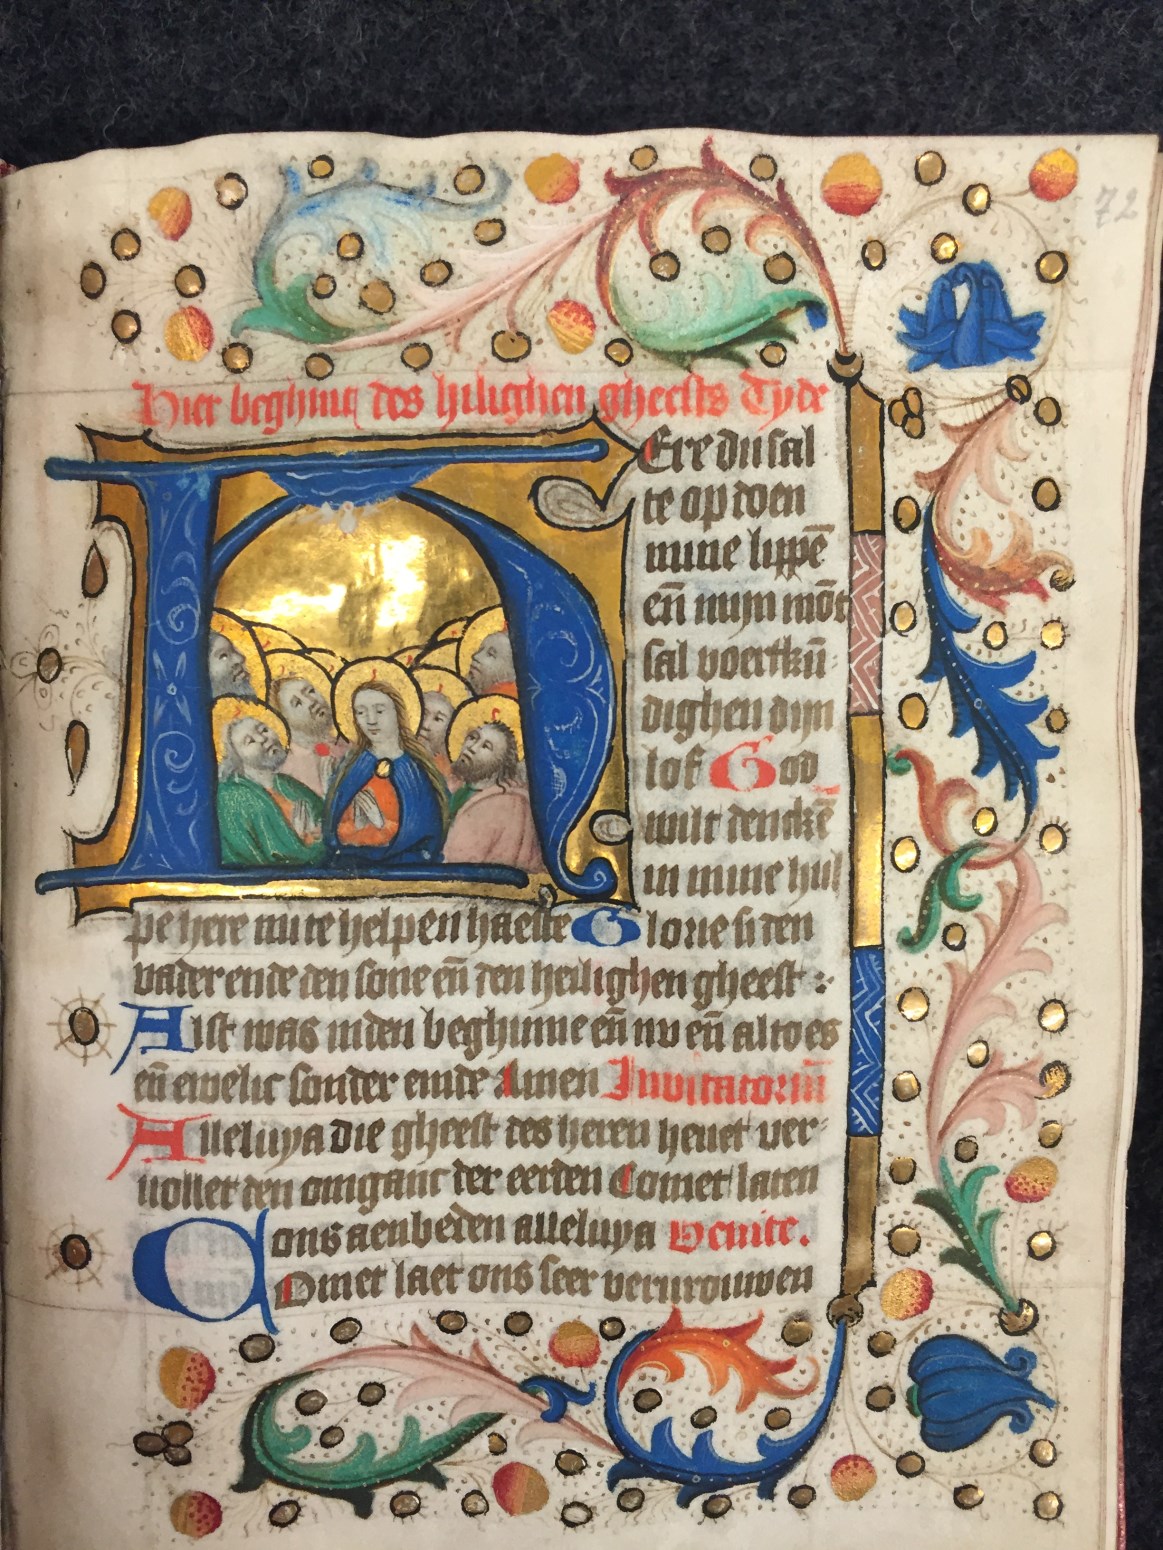 72
Hier beghint des hilighen gheests Tyde
HEre du sal
te op doen
mine lippē
eñ mijn mōt
sal voertkū
dighen dijn
lof God
wilt denckē
in mine hul
pe here mi te helpen haeste Glorie si den
vader ende den sone eñ den heilighen gheest :·
Alst was inden beghinne eñ nv eñ altoes
eñ ewelic sonder einde Amen Invitatoriū
Alleluya die gheest des heren heuet ver-
uollet den omganc der eerden Comet laten
ons aenbeden alleluya Venite.
COmet laet ons seer vervrouwen